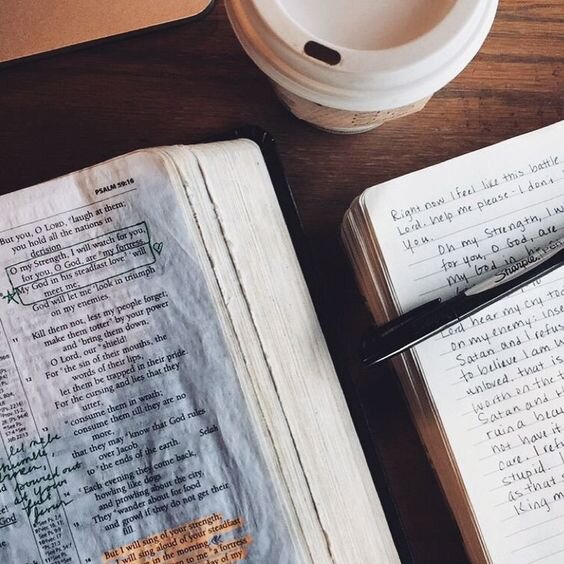 PSALM 59:16
But you, O LORD, laugh at them;
you hold all the nations in
derision.
O my Strength, I will watch for you,
for you, O God, are my fortress.
My God in his steadfast love will
meet me;
God will let me look in triumph
on my enemies.
Kill them not, lest my people forget;
make them totter by your power
and bring them down,
O Lord, our shield!
For the sin of their mouths, the
words of their lips,
let them be trapped in their pride.
For the cursing and lies that they
utter,
consume them in wrath;
consume them till they are no
more,
that they may know that God rules
over Jacob
to the ends of the earth. Selah
Each evening they come back,
howling like dogs
and prowling about the city.
They wander about for food
and growl if they do not get their
fill.
But I will sing of your strength;
I will sing aloud of your steadfast
in the morning.
to me a fortress
day of my
Right now I feel like this battle
Lord, help me please - I don't
you.
Oh my Strength, I w
for you, O God, are
my God in
Sharpie
Lord hear my cry to
on my enemy;
Satan and I refus
to believe I am w
unloved. that is
worth on the
Satan and th
ruin a beau
not have it
care. I refu
stupid.
as that s
King m